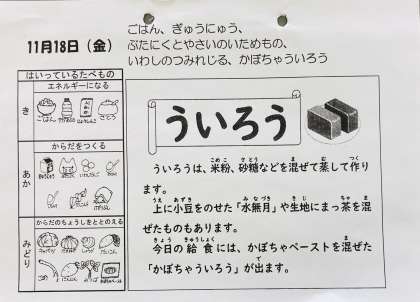 11月18日（金）
ごはん、ぎゅうにゅう、
ぶたにくとやさいのいためもの、
いわしのつみれじる、かぼちゃういろう
はいっているたべもの
エネルギーになる
き
ごはん
さとう
からだをつくる
あか
からだのちょうしをととのえる
みどり
ういろう
ういろうは、米粉、砂糖などを混ぜて蒸して作り
ます。
上に小豆をのせた「水無月」や生地にまっ茶を混
ぜたものもあります。
今日の給食には、かぼちゃペーストを混ぜた
「かぼちゃういろう」が出ます。